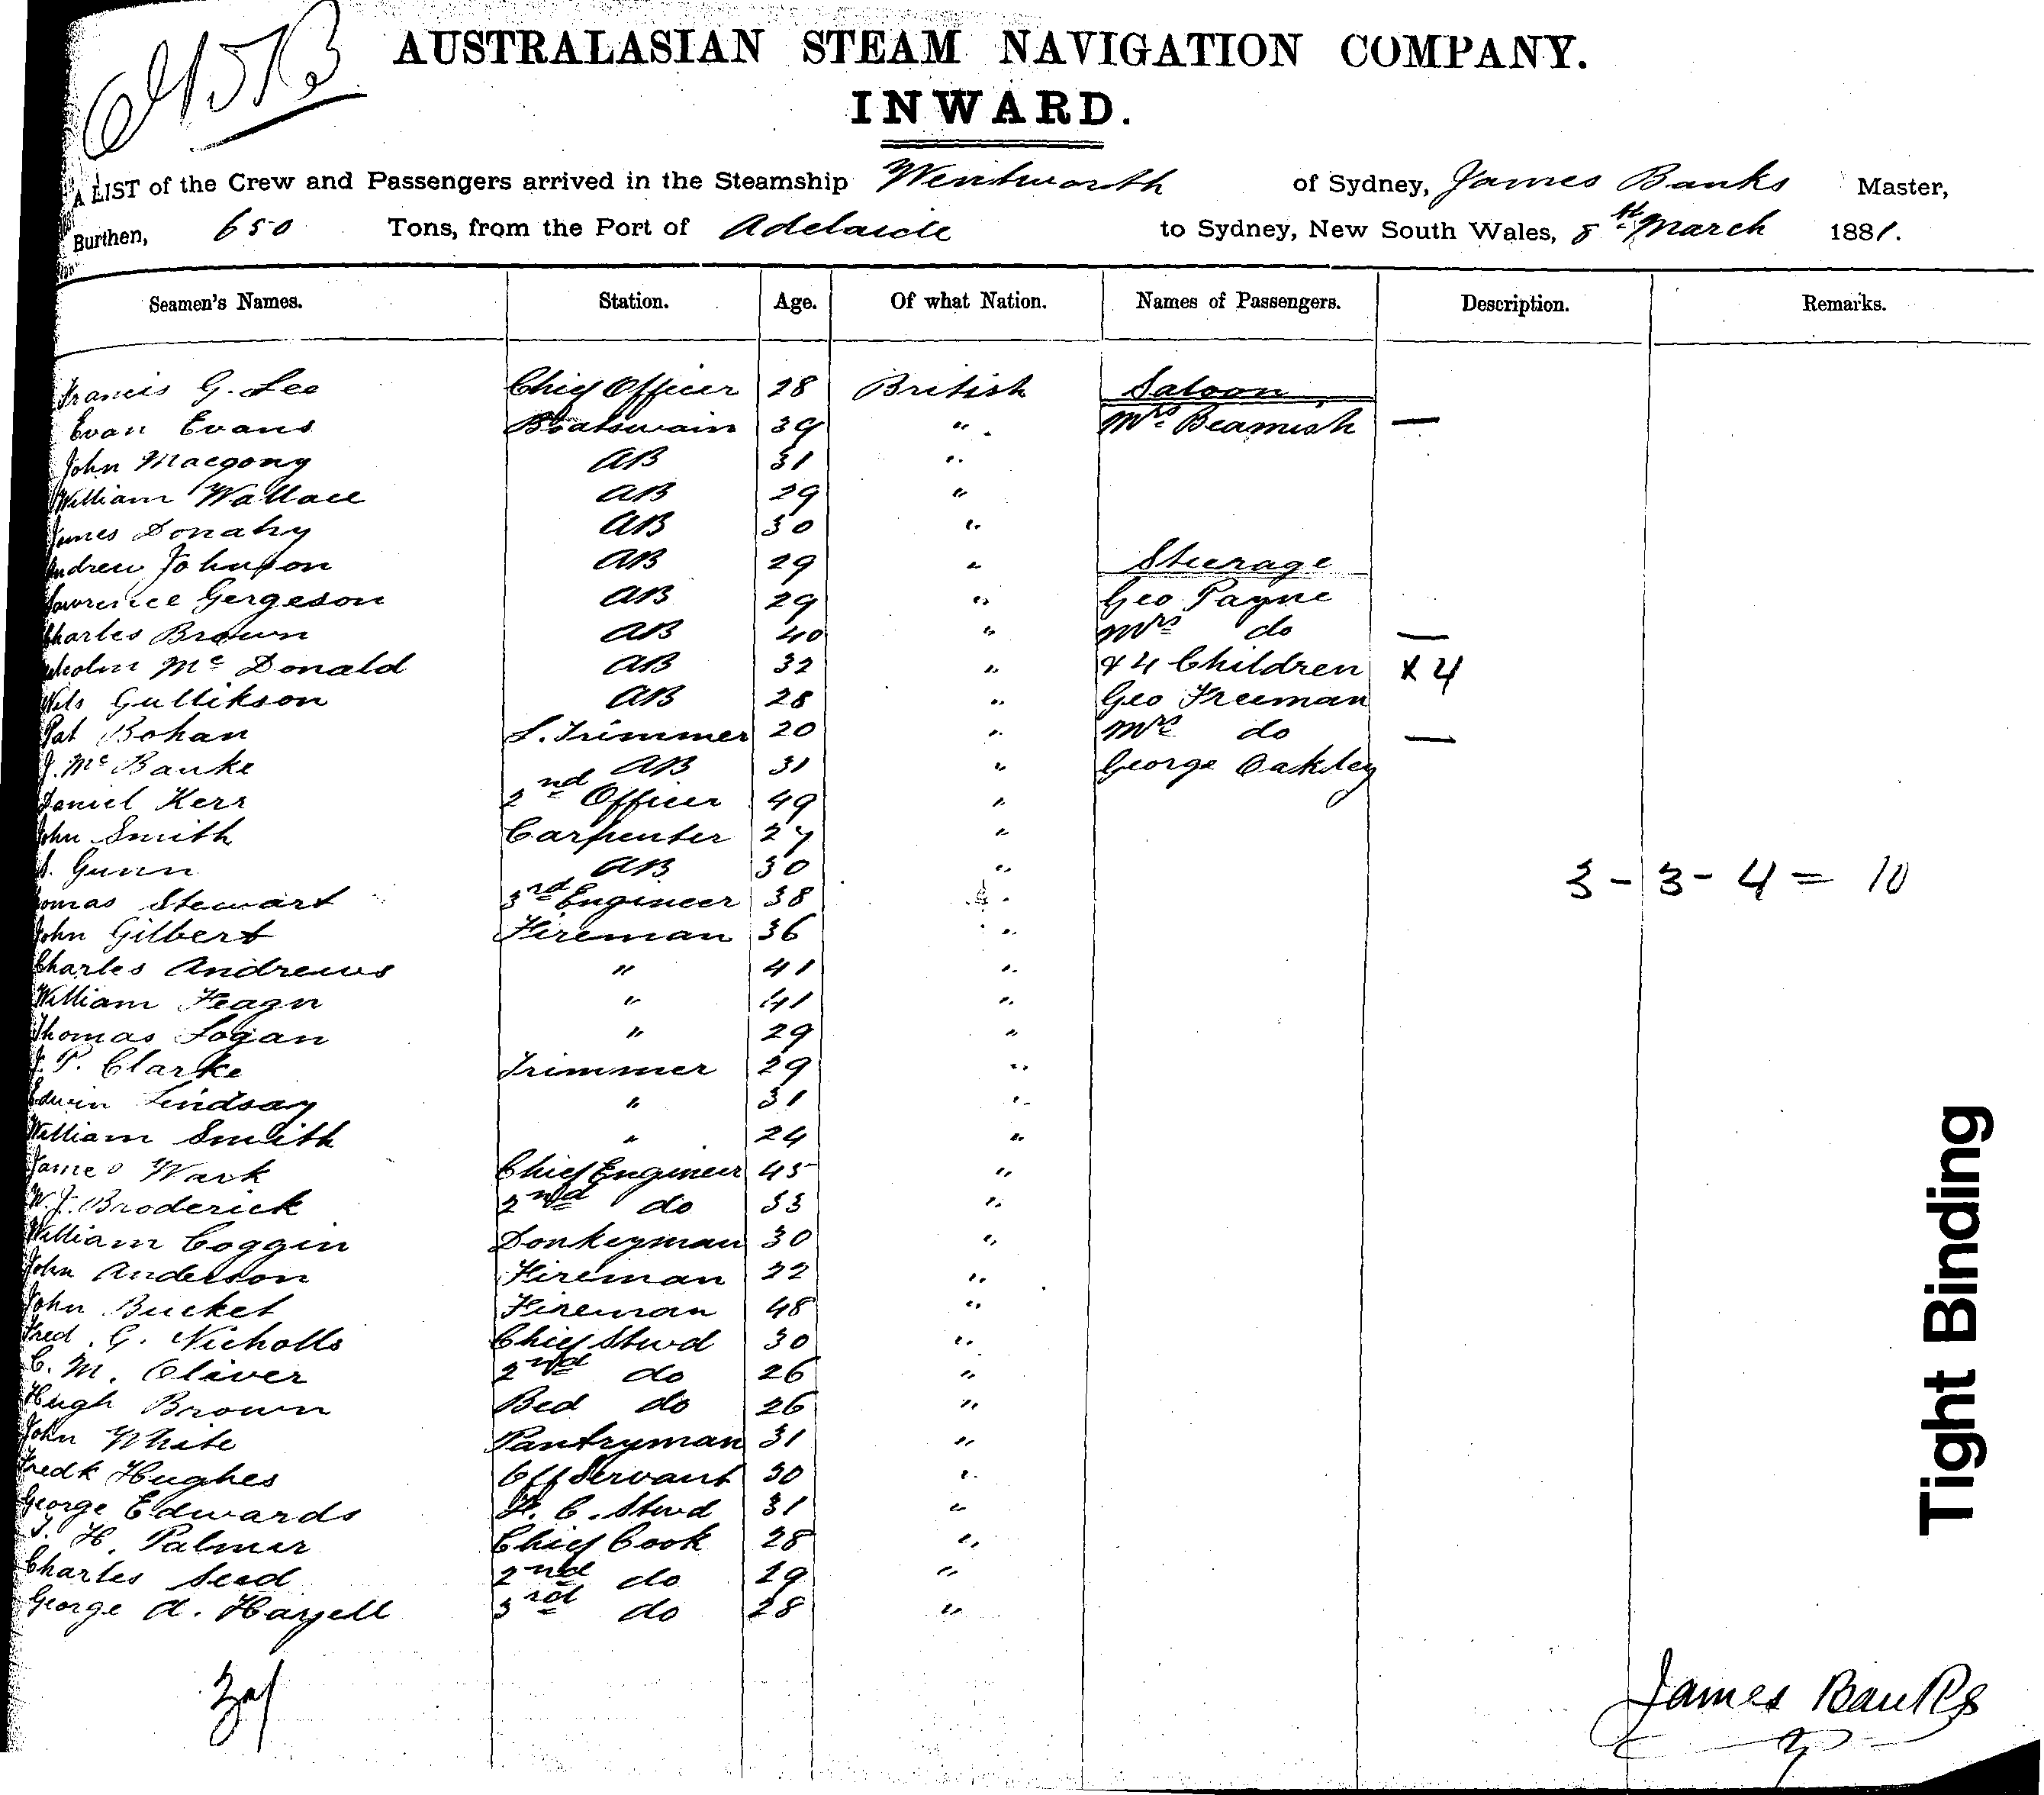 AUSTRALASIAN STEAM NAVIGATION COMPANY.
INWARD.
A LIST of the Crew and Passengers arrived in the Steamship Wentworth of Sydney, James Banks Master,
Burthen, 650 Tons, from the Port of Adelaide to Sydney, New South Wales, 8th March 1881.
Seamen's Names. Station. Age. Of what Nation. Names of Passengers. Description. Remarks.
Francis G. Lee Chief Officer 28 British Saloon
Evan Evans Boatswain 39 " Mrs Beamish —
John Macgony AB 31 "
William Wallace AB 29 "
James Donahy AB 30 "
Andrew Johnson AB 29 " Steerage
Lawrence Gergeson AB 29 " Geo Payne
Charles Brown AB 40 " Mrs do —
Malcolm McDonald AB 32 " & 4 Children X 4
Nils Gullikson AB 28 " Geo Freeman
Pat Bohan S. Trimmer 20 " Mrs do —
J. Mc Banke AB 31 " George Oakley
Daniel Kerr 2nd Officer 49 "
John Smith Carpenter 27 "
S. Gunn AB 30 " 3 - 3 - 4 = 10
Thomas Stewart 3rd Engineer 38 "
John Gilbert Fireman 36 "
Charles Andrews " 41 "
William Feagn " 41 "
Thomas Logan " 29 "
J. P. Clarke Trimmer 29 "
Edwin Lindsay " 31 "
William Smith " 24 "
James Wark Chief Engineer 45 "
W. J. Broderick 2nd do 33 "
William Coggin Donkeyman 30 "
John Anderson Fireman 22 "
John Bucket Fireman 48 "
Fred. G. Nicholls Chief Stwd 30 "
C. M. Oliver 2nd do 26 "
Hugh Brown Bed do 26 "
John White Pantryman 31 "
Fredk Hughes Off Servant 30 "
George Edwards F. C. Stwd 31 "
T. H. Palmer Chief Cook 28 "
Charles Seed 2nd do 29 "
George A. Hazell 3rd do 28 "
James Banks
Tight Binding